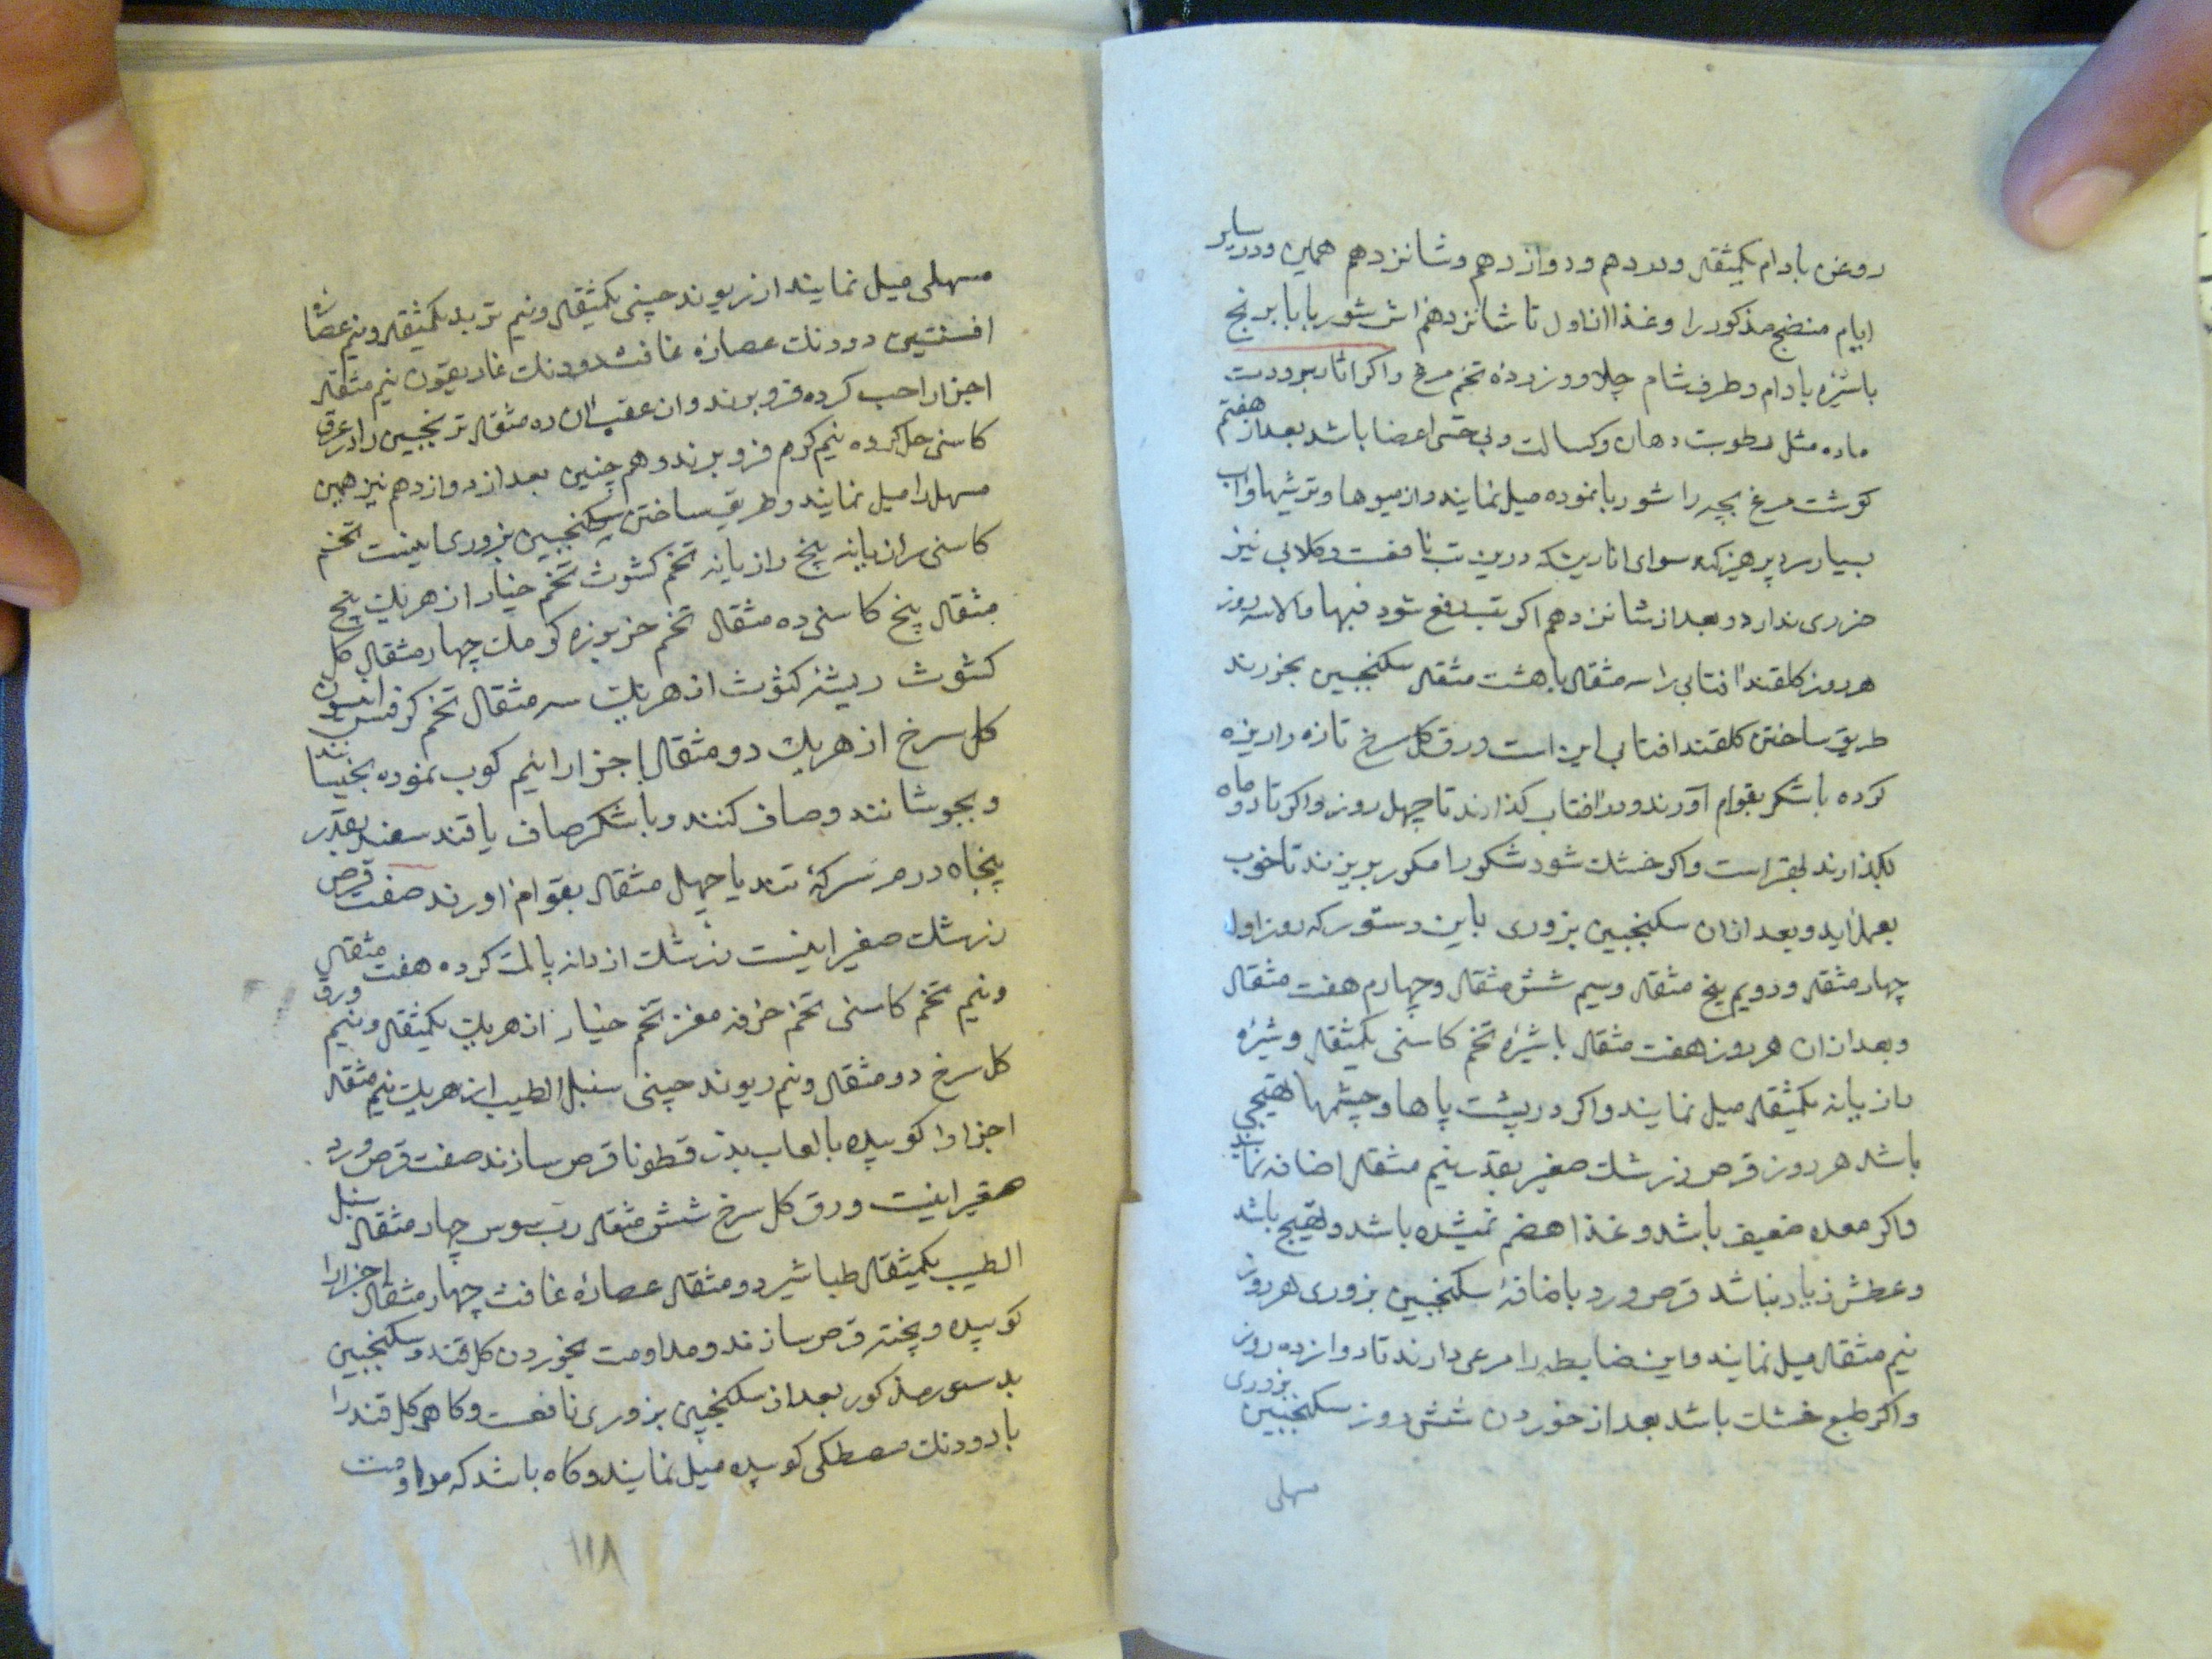 روغن بادام یکمثقال ودر دهم ودوازدهم وشانزدهم همین ودر سایر
ایام منضج مذکور را وغذا از اول تا شانزدهم اش شوربا با برنج
باشیره بادام وطرف شام چلاو وزرده تخم مرغ واکر اثار برودت
ماده مثل رطوبت دهان وکسالت وبی حسی اعضا باشد بعد از هفتم
کوشت مرغ بچه را شوربا نموده میل نمایند واز میوها وترشیها واب
بسیار سرد پرهیز کند سوای انار که درین تب نافعست وکلابی نیز
ضرری ندارد وبعد از شانزدهم اکر تب رفع شود فبها والا سه روز
هر روز کلقند افتابی را سه مثقال باهشت مثقال سکنجبین بخورند
طریق ساختن کلقند افتابی این است ورق کل سرخ تازه را ریزه
کرده باشکر بقوام آورند ودر افتاب کذارند تا چهل روز واکر تا دو ماه
بکذارند بهتر است واکر خشک شود شکر را مکرر بریزند تا خوب
بعمل اید وبعد از ان سکنجبین بزوری باین دستور که روز اول
چهار مثقال ودویم پنج مثقال وسیم شش مثقال وچهارم هفت مثقال
وبعد از ان هر روز هفت مثقال باشیره تخم کاسنی یکمثقال وشیره
رازیانه یکمثقال میل نمایند واکر در پشت پاها وچشمها تهیجی
باشد هر روز قرص زرشک صغیر بقدر نیم مثقال اضافه نمایند
واکر معده ضعیف باشد وغذا هضم نمیشده باشد وتهیج باشد
وعطش زیاد نباشد قرص ورد باضافهٔ سکنجبین بزوری هر روز
نیم مثقال میل نمایند واین ضابطه را مرعی دارند تا دوازده روز
واکر طبع خشک باشد بعد از خوردن شش روز سکنجبین بزوری
مسهلی
مسهلی میل نمایند از ریوند چینی یکمثقال ونیم تربد یکمثقال ونیم عصاره
افسنتین دودنک عصاره غافث دودنک غاریقون نیم مثقال
اجزا را حب کرده فرو برند وان عقب ان ده مثقال ترنجبین را در عرق
کاسنی حل کرده نیم کرم فرو برند وهم چنین بعد از دوازدهم نیز همین
مسهل را میل نمایند وطریق ساختن سکنجبین بزوری اینست تخم
کاسنی رازیانه پنج رازیانه تخم کشوث تخم خیار از هر یک پنج
مثقال پنج کاسنی ده مثقال تخم خربوزه کرمک چهار مثقال کل
کشوث ریشهٔ کشوث از هر یک سه مثقال تخم کرفس انیسون
کل سرخ از هر یک دو مثقال اجزا را نیم کوب نموده بخیسانند
وبجوشانند وصاف کنند وباشکر صاف یا قند سفید بقدر
پنجاه درم سرکهٔ تند یا چهل مثقال بقوام اورند صفت قرص
زرشک صغیر اینست زرشک از دانه پاک کرده هفت مثقال
ونیم تخم کاسنی تخم خرفه مغز تخم خیار از هر یک یکمثقال ونیم ورق
کل سرخ دو مثقال ونیم ریوند چینی سنبل الطیب از هر یک نیم مثقال
اجزا را کوبیده بالعاب بذر قطونا قرص سازند صفت قرص ورد
صغیر اینست ورق کل سرخ شش مثقال رب سوس چهار مثقال سنبل
الطیب یکمثقال طباشیر دو مثقال عصاره غافث چهار مثقال اجزا را
کوبیده وپخته قرص سازند ومداومت بخوردن کل قند وسکنجبین
بدستور مذکور بعد از سکنجبین بزوری نافعست وکاهی کل قند را
بادودنک مصطکی کوبیده میل نمایند وکاه باشد که مداومت
۱۱۸